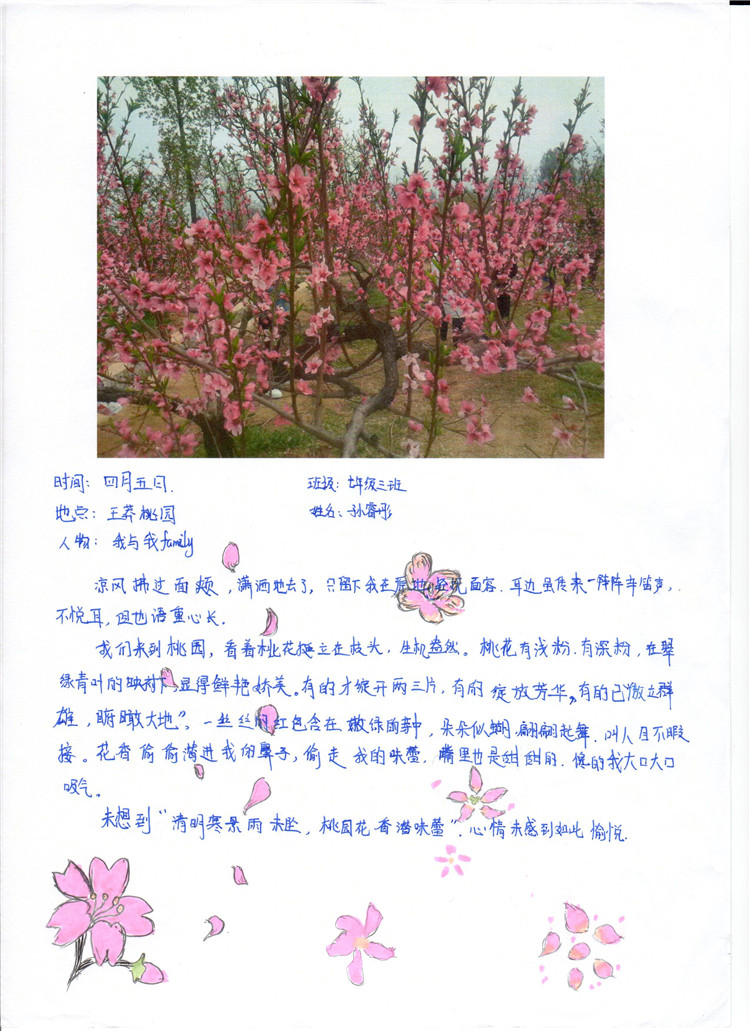 时间：四月五日.
班级：七年级三班
地点：王莽桃园
姓名：孙睿彤
人物：我与我family
凉风拂过面颊，潇洒地去了，只留下我在原地 面容.耳边虽传来一阵阵车笛声，.
不悦耳，但也语重心长.
我们来到桃园，看着桃花挺立在枝头，生机盎然。桃花有浅粉.有深粉，在翠
绿青叶的映衬下显得鲜艳娇美。有的才绽开两三片，有的绽放芳华。有的已傲立群
雄，瞬瞰大地"。一丝丝的红包含在嫩绿的 中，朵朵似蝴翩翩起舞.叫人目不暇
接。花香偷偷潜进我的鼻子，偷走我的味蕾，嘴里也是甜甜的.馋的我大口大口
吸气。
未想到"清明寒景雨未坠，桃园花香潜味蕾".心情未感到如此愉悦.